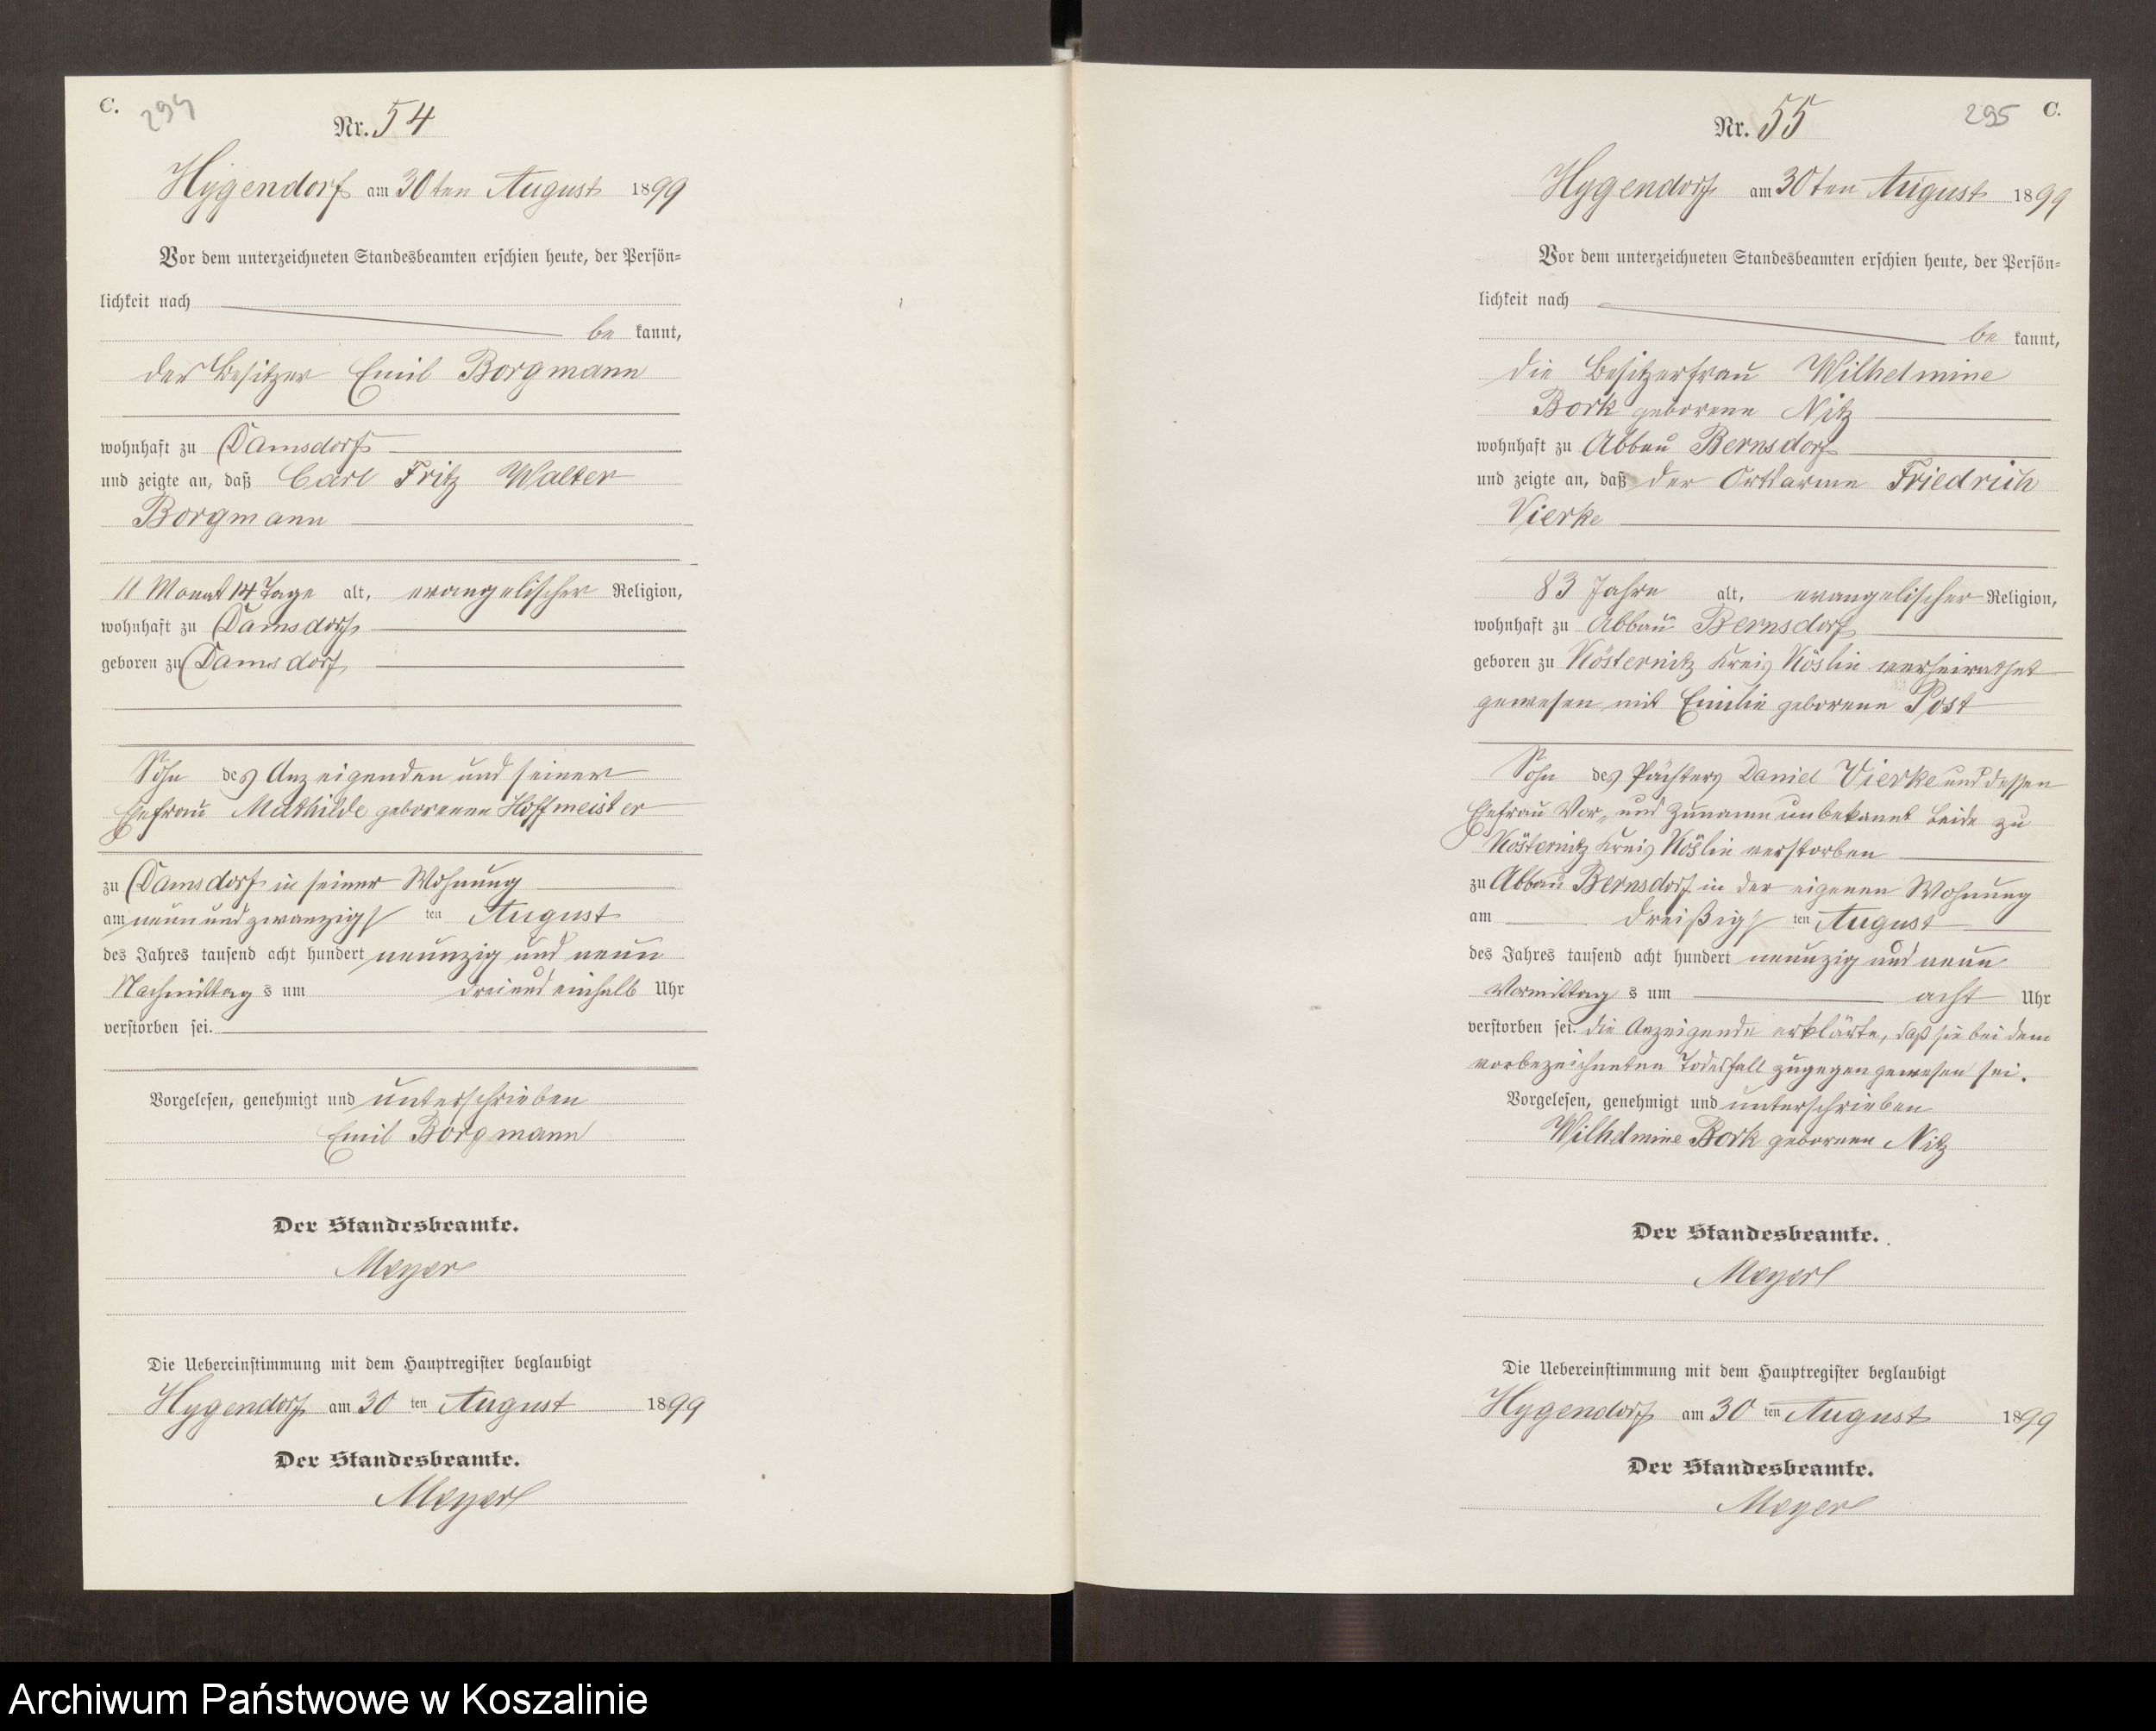 C. 294
Nr. 54
Hygendorf am 30ten August 1899
Vor dem unterzeichneten Standesbeamten erschien heute, der Persön-
lichkeit nach
be kannt,
der Besitzer Emil Borgmann
wohnhaft zu Damsdorf
und zeigte an, daß Carl Fritz Walter
Borgmann
11 Monat 14 Tage alt, evangelischer Religion,
wohnhaft zu Damsdorf
geboren zu Damsdorf
Sohn des Anzeigenden und seiner
Ehefrau Mathilde geborenen Hoffmeister
zu Damsdorf in seiner Wohnung
am neun und zwanzigsten August
des Jahres tausend acht hundert neunzig und neun
Nachmittags um drei und einhalb Uhr
verstorben sei.
Vorgelesen, genehmigt und unterschrieben
Emil Borgmann
Der Standesbeamte.
Meyer
Die Uebereinstimmung mit dem Hauptregister beglaubigt
Hygendorf am 30 ten August 1899
Der Standesbeamte.
Meyer
295 C.
Nr. 55
Hygendorf am 30ten August 1899
Vor dem unterzeichneten Standesbeamten erschien heute, der Persön-
lichkeit nach
be kannt,
die Besitzerfrau Wilhelmine
Bork geborene Nitz
wohnhaft zu Abbau Bernsdorf
und zeigte an, daß der Ortsarme Friedrich
Vierke
83 Jahre alt, evangelischer Religion,
wohnhaft zu Abbau Bernsdorf
geboren zu Kösternitz Kreis Köslin verheirathet
gewesen mit Emilie geborene Post
Sohn des Pächters Daniel Vierke und dessen
Ehefrau Vor- und Zuname unbekannt beide zu
Kösternitz Kreis Köslin verstorben
zu Abbau Bernsdorf in der eigenen Wohnung
am dreißigsten August
des Jahres tausend acht hundert neunzig und neun
Vormittags um acht Uhr
verstorben sei. die Anzeigende erklärte, daß sie bei dem
vorbezeichneten Todesfall zugegen gewesen sei.
Vorgelesen, genehmigt und unterschrieben
Wilhelmine Bork geborene Nitz
Der Standesbeamte.
Meyer
Die Uebereinstimmung mit dem Hauptregister beglaubigt
Hygendorf am 30 ten August 1899
Der Standesbeamte.
Meyer
Archiwum Państwowe w Koszalinie